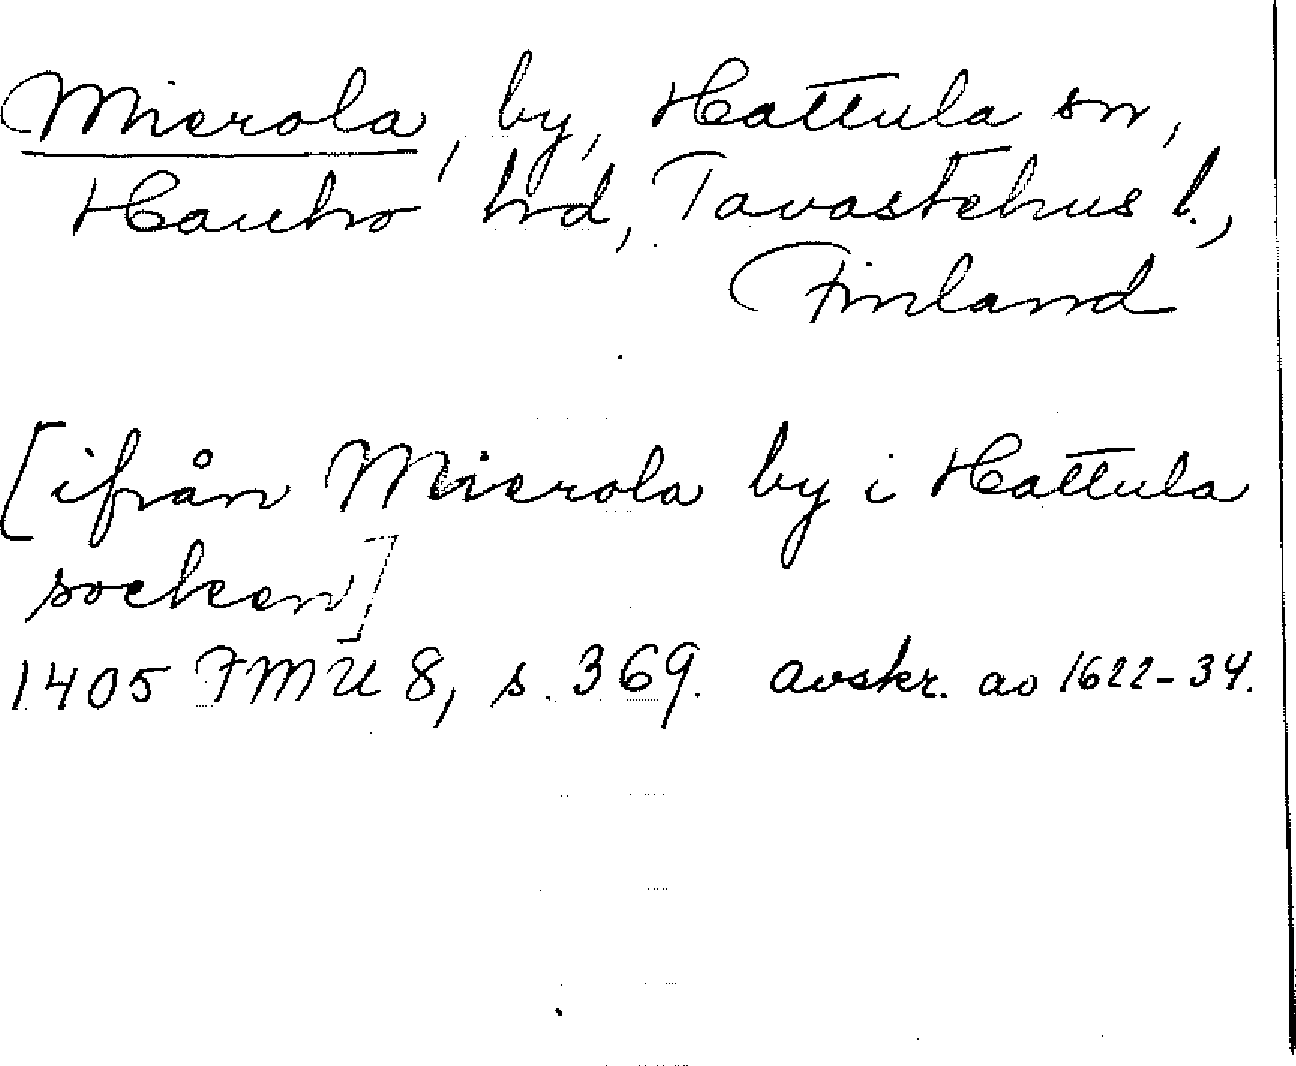 Mierola, by, Hattula sn,
Hauho hd, Tavastehus l.,
Finland
[ifrån Mierola by i Hattula
socken]
1405 FMU 8, s. 369. avskr. av 1622-34.